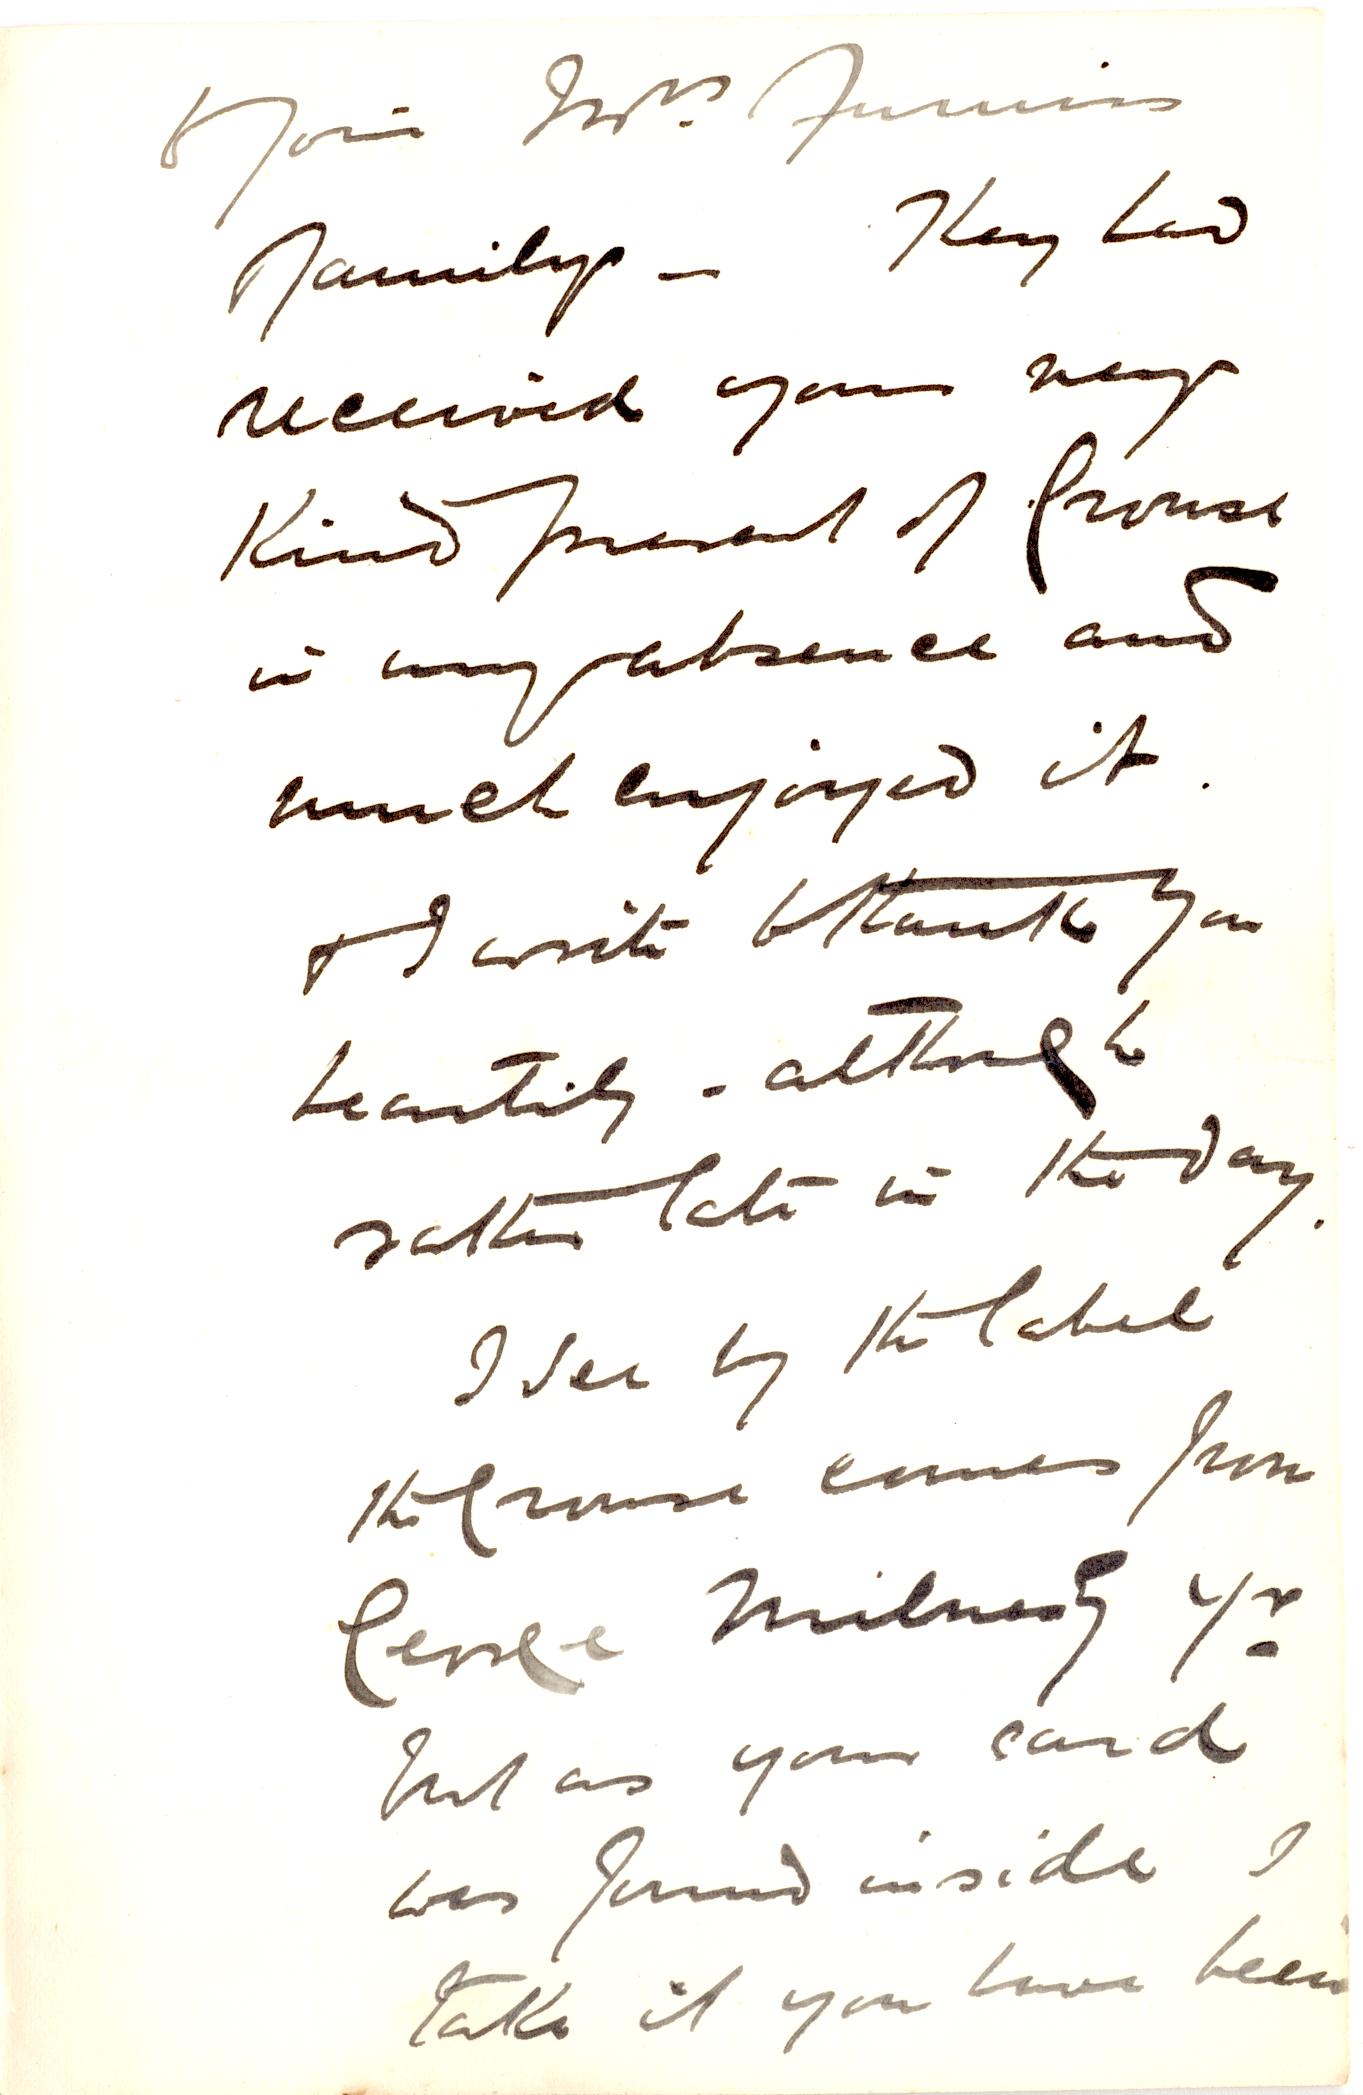 to join Mrs. Furniss
family — They had
received your very
kind present of Grouse
in my absence and
much enjoyed it.
& I write to thank you
heartily - although
rather late in the day.
I see by the label
the Grouse comes from
George Milner yr
but as your card
was found inside I
take it you have been